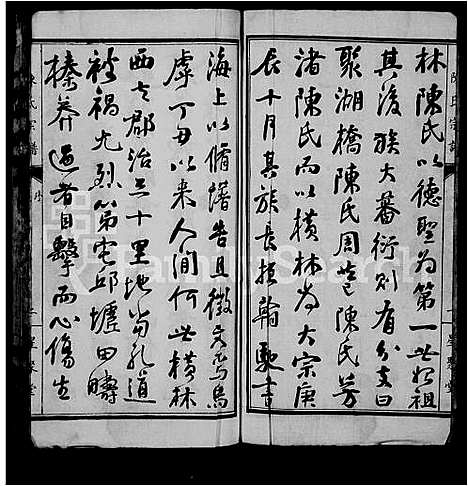 林陳氏以德聖為第一世祖
其後族大蕃衍則有分支曰
聚湖橋陳氏周莊陳氏芳
渚陳氏而以橫林為大宗庚
辰十月其族長振翰馳書
海上以脩譜告且徵文焉烏
虖丁丑以來人間何世橫林
西去郡治三十里地當孔道
被禍尤烈第宅邱壠田疇
榛莽過者目擊而心傷生
陳氏宗譜
序
二
星聚堂
陳氏宗譜
星聚堂
FamilySearch